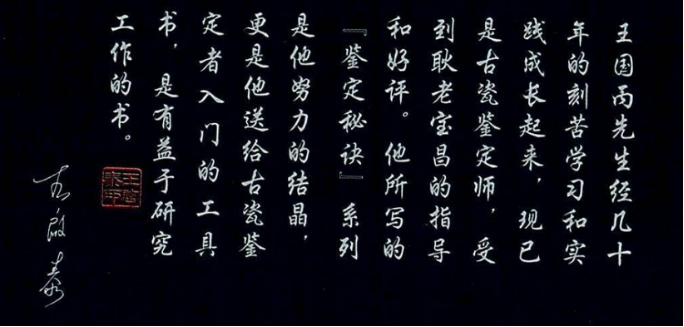 王国丙先生经几十
年的刻苦学习和实
践成长起来，现已
是古瓷鉴定师，受
到耿老宝昌的指导
和好评。他所写的
『鉴定秘诀』系列
是他努力的结晶，
更是他送给古瓷鉴
定者入门的工具
书，是有益于研究
工作的书。
启泰